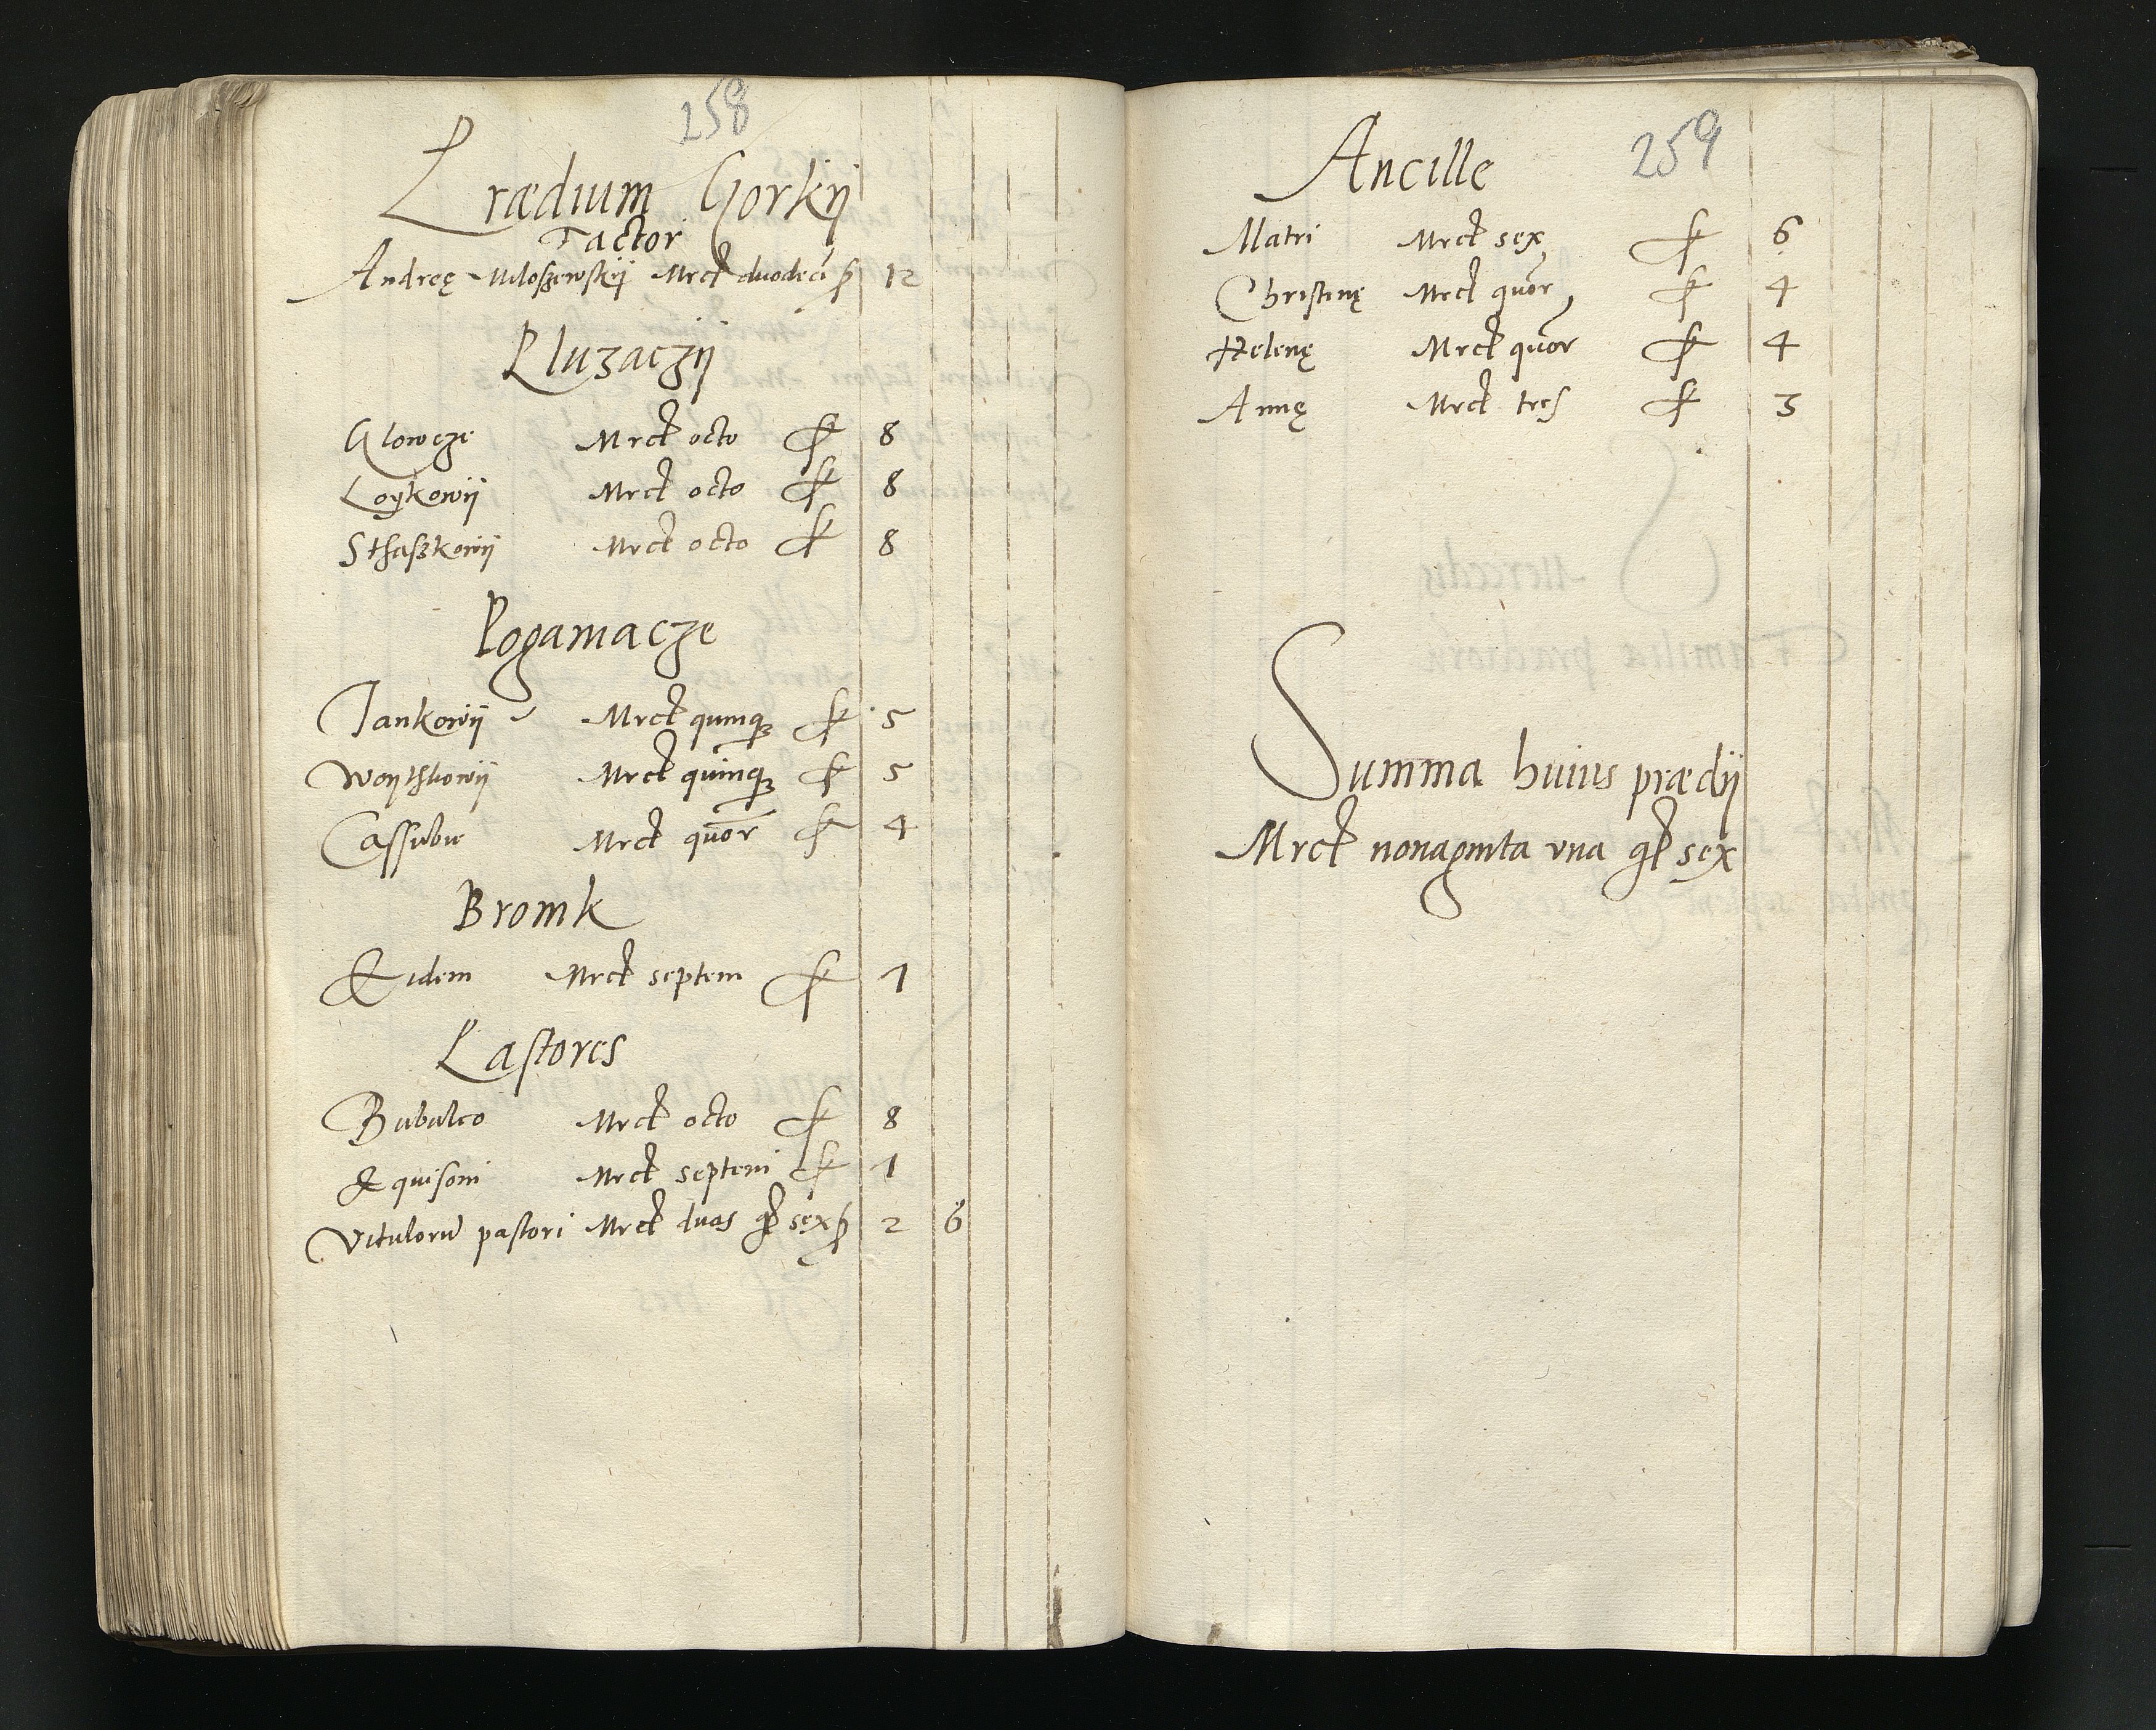 258
Prædium Gorkij
Factor
Andreę Miloszewskij Mrck duodecī ƒ 12
Pluzaczij
Glowcze Mrck octo ƒ 8
Loykowij Mrck octo ƒ 8
Sthaszkowij Mrck octo ƒ 8
Poganiacze
Jankowij Mrck quinqꝫ ƒ 5
Woythkowij Mrck quinqꝫ ƒ 5
Cassubie Mrck quōr ƒ 4
Bronik
Eidem Mrck septem ƒ 7
Pastores
Bubulco Mrck octo ƒ 8
Equisoni Mrck septem ƒ 7
Vitulorū pastori Mrck duas gł sex ƒ 2 6
259
Ancille
Matri Mrck sex ƒ 6
Christinę Mrck quōr ƒ 4
Helenę Mrck quōr ƒ 4
Annę Mrck tres ƒ 3
Summa huius prædij
Mrck nonaginta vna gł sex